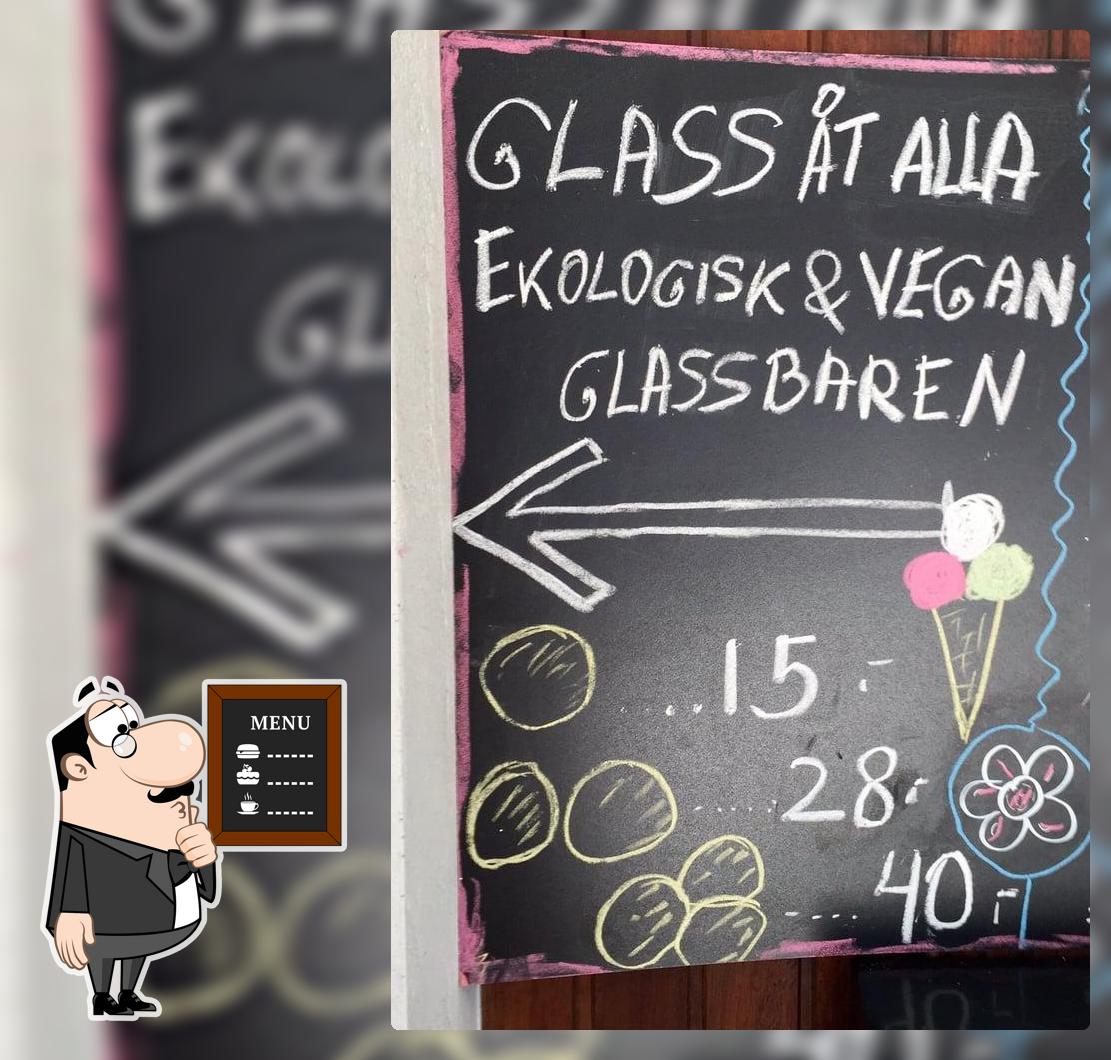 GLASS ÅT ALLA
EKOLOGISK & VEGAN
GLASSBAREN
....15:-
.....28:-
....40:-
MENU